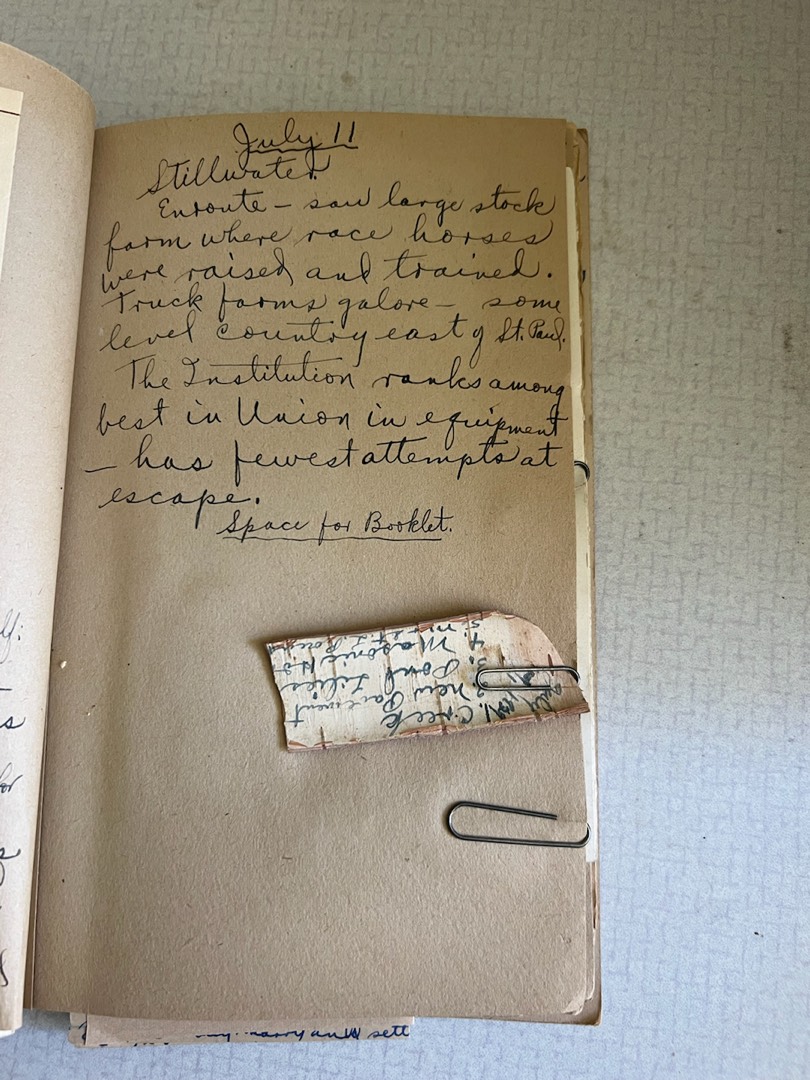 July 11
Stillwater.
Enroute – saw large stock
farm where race horses
were raised and trained.
Truck farms galore – some
level country east of St. Paul.
The Institution ranks among
best in Union in equipment
– has fewest attempts at
escape.
Space for Booklet.
1. Creek
2. New Pavement
3. Pond Lilies
4. Masonic H.
5.